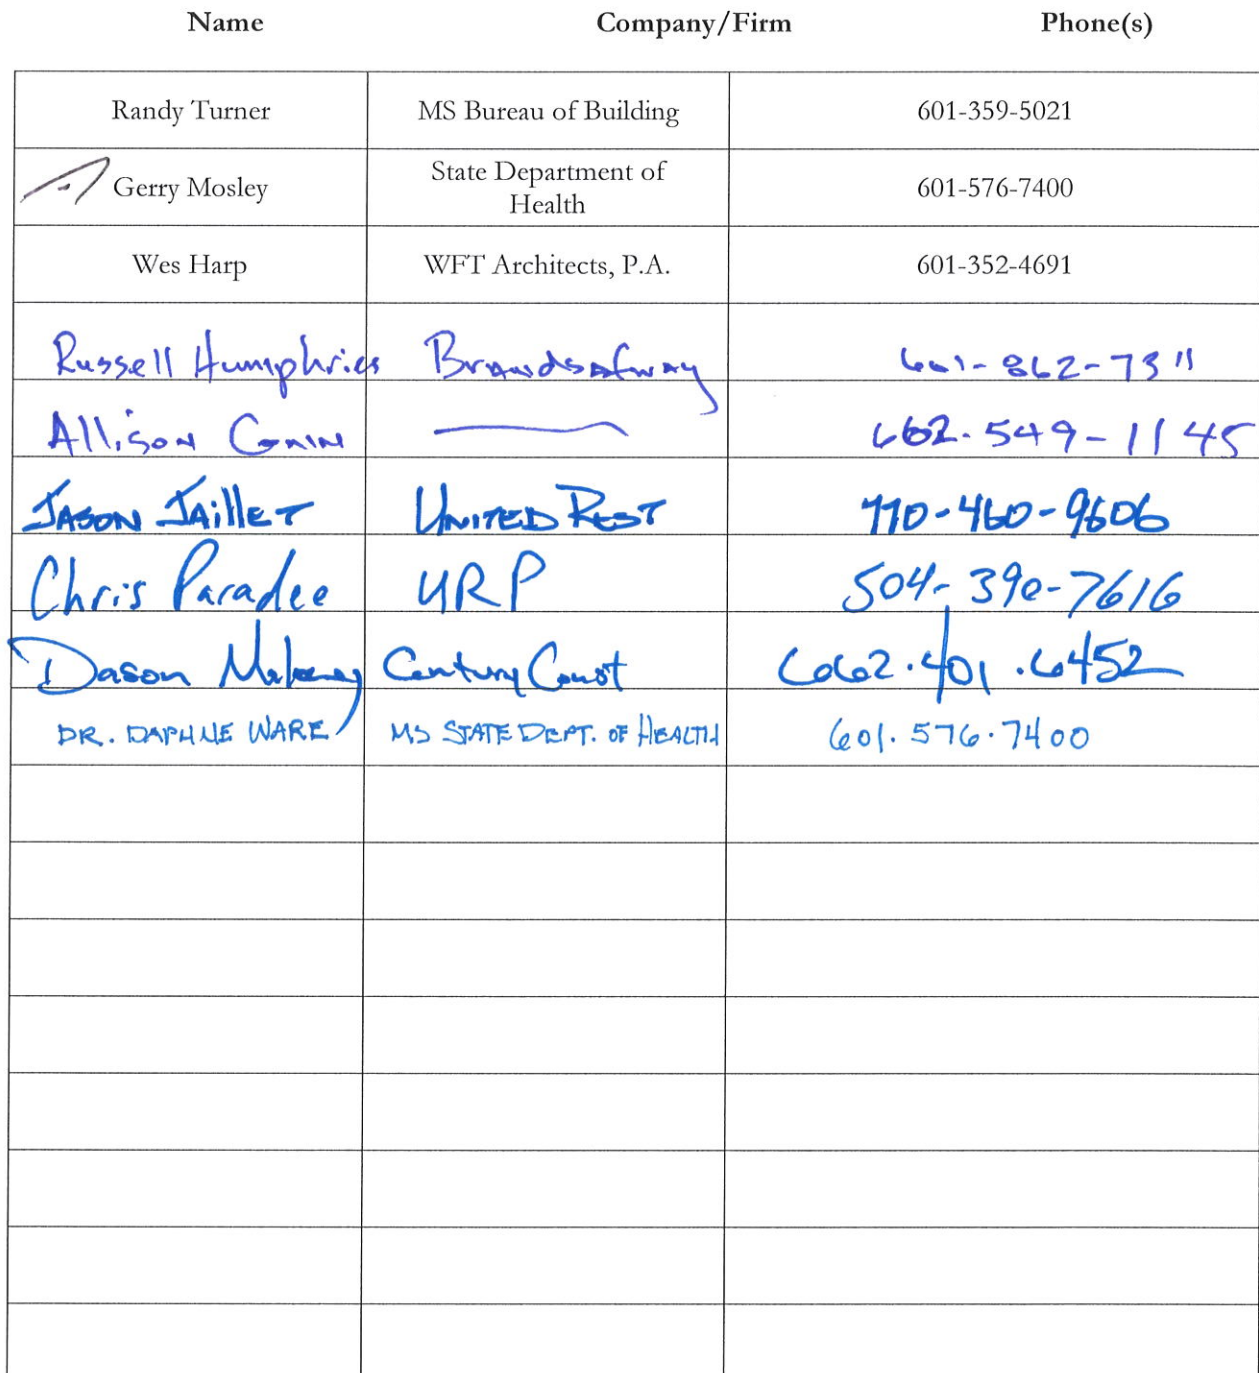 Name Company/Firm Phone(s)
Randy Turner MS Bureau of Building 601-359-5021
Gerry Mosley State Department of Health 601-576-7400
Wes Harp WFT Architects, P.A. 601-352-4691
Russell Humphries Brandsafway 601-862-7311
Allison 662.549-1145
JASON JAillET UNITED REST 770-460-9606
Chris Paradee URP 504-390-7616
Dason Century Const 662.401.6452
DR. DAPHNE WARE MS STATE DEPT. OF HEALTH 601.576.7400